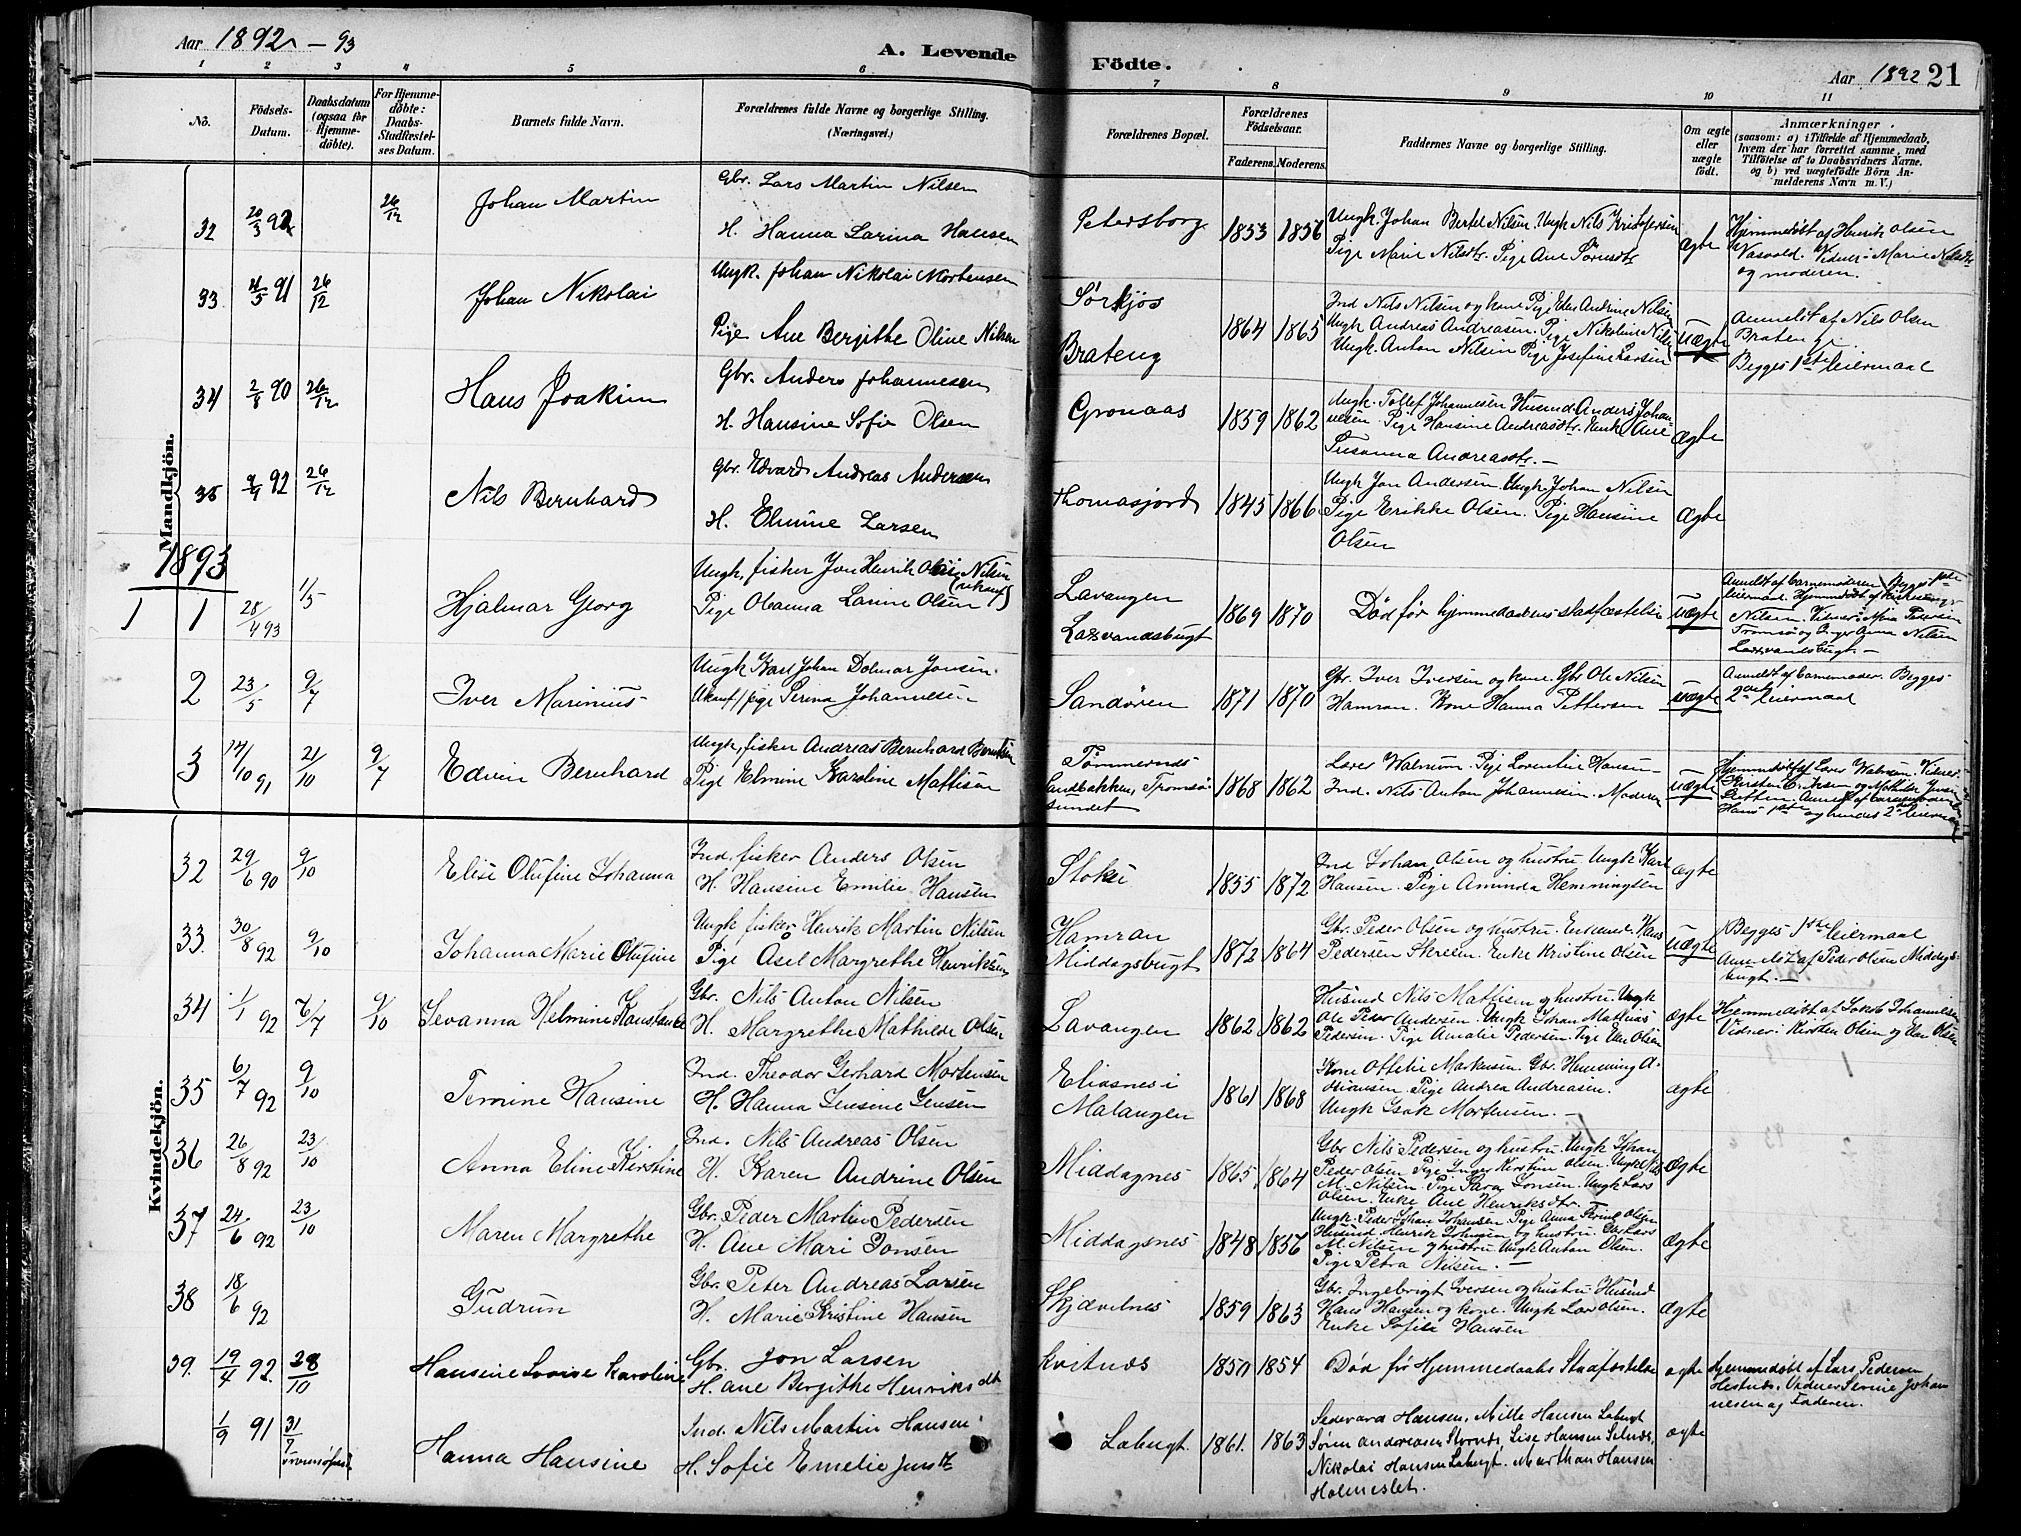 Aar 1892 – 93
A. Levende Födte.
Aar 1892 21
1 2 3 4 5 6 7 8 9 10 11
No.
Födsels-Datum.
Daabsdatum (ogsaa for Hjemmedöbte).
For Hjemmedöbte: Daabs-Stadfæstelses Datum.
Barnets fulde Navn.
Forældrenes fulde Navne og borgerlige Stilling. (Næringsvei.)
Forældrenes Bopæl.
Forældrenes Födselsaar.
Faderens. Moderens.
Faddernes Navne og borgerlige Stilling.
Om ægte eller uægte födt.
Anmærkninger.
(saasom: a) i Tilfælde af Hjemmedaab, hvem der har forrettet samme, med Tilföielse af to Daabsvidners Navne. og b) ved uægtefödte Börn Anmelderens Navn m. V.)
Mandkjön.
32 20/3 92 26/12 Johan Martin
Gbr. Lars Martin Nilsen
H. Hanna Larina Hansen
Petersborg 1853 1856
Ungk. Johan Bertel Nilsen. Ungk Nils Kristofersen
Pige Marie Nilsdtr. Pige Ane Sørnsdtr
ægte
Hjemmedøbt af Henrik Olsen
Vasvold. Vidner: Marie Nilsdtr
og moderen.
33 4/5 91 26/12 Johan Nikolai
Ungk. Johan Nikolai Mortensen
Pige Ane Bergithe Oline Nilsen
Sørkjos
Brateng
1864 1865
Ind Nils Nilsen og kone Pige Edes Andrine Nilsen
Ungk Andreas Andreasen. Pige Nikoline Nilsen
Ungk. Anton Nilsen Pige Josefine Larsen
uægte
Anmeldt af Nils Olsen
Brateng.
Begges 1ste leiermaal
34 2/8 90 26/12 Hans Joakim
Gbr. Anders Johannesen
H. Hansine Sofie Olsen
Gronaas 1859 1862
Ungk. Tollef Johannesen Husmd Anders Johannesen. Pige Hansine Andreasdtr. Enke Ane
Susanna Andreasdtr. —
ægte
35 9/9 92 26/12 Nils Bernhard
Gbr. Edvard Andreas Andersen
H. Elmine Larsen
Thomasjord 1845 1866
Ungk Jon Andersen. Ungk. Johan Nilsen
Pige Erikke Olsen. Pige Hansine
Olsen
ægte
1893
1 1 28/4 93 1/5 Hjalmar Georg
Ungk, fisker Jon Henrik Olai Nilsen
Pige Olianna Larine Olsen
Lavangen
Laxvandsbugt
1869 1870
Død før hjemmedaabens stadfæstelse
uægte
Anmeldt af barnemoderen Begges 1ste
leiermaal. Hjemmedøbt af kirkesanger
Nilsen. Vidner: Mina Pedersen
Tromsø og Inger Anna Nilsen
Laxvandsbugt. —
2 23/5 9/7 Iver Marinius
Ungk Karl Johan Dolmar Jonsen.
pige Serina Johannesen
Sandøren 1871 1870
Gbr. Iver Iversen og kone. Gbr Ole Nilsen
Hamran. Kone Hanna Pettersen
uægte
Anmeldt af barnemoder. Begges
2det leiermaal
3 14/10 91 21/10 9/7 Edvin Bernhard
Ungk, fisker Andreas Bernhard Berntsen
Pige Elmine Karoline Mattisen
Tømmernes
Sandbakken, Tromsøsundet
1868 1862
Lærer Walnum. Pige Lorentine Hansen
Ind. Nils Anton Johannesen. Moderen
uægte
Hjemmedøbt af Lærer Walnum. Vidner:
Hans 1ste og hendes 2det leiermaal
Kvindekjön.
32 29/6 90 9/10 Elise Olufine Johanna
Ind. fisker Anders Olsen
H. Hansine Emilie Hansen
Stokke 1855 1872
Ind Johan Olsen og hustru Ungk Karl
Hansen. Pige Aminda Hemmingsen
ægte
33. 30/8 92 9/10 Johanna Marie Olufine
Ungk fisker Henrik Martin Nilsen
Pige Asel Margrethe Henriksen
Hamran
Middagsbugt
1872 1864
Gbr. Peder Olsen og hustru. Enkemd Hans
Pedersen Skreien. Enke Kristine Olsen
uægte
Begges 1ste leiermaal
Anmeldt af Peder Olsen Middagsbugt. —
34 1/1 92 7/7 9/10 Jevanna Helmine Konstanse
Gbr. Nils Anton Nilsen
H. Margrethe Mathilde Olsen
Lavangen 1862 1862
Husmd Nils Mattisen og hustru. Ungk
Ole Peder Andersen. Ungk Johan Mathias
Pedersen. Pige Amalie Pedersen. Pige Elen Olsen
ægte
Hjemmedøbt af Jakob Johannesen
Vidner: Kirsten Olsen og Elen Olsen
35 6/7 92 9/10 Temine Hansine
Ind. Theodor Gerhard Mortensen
H. Hanna Jensine Jensen
Eliasnes i
Malangen
1861 1868
Kone Ottelie Markusen. Gbr. Hemming A.
Pige Andrea Andreasen.
Ungk Isak Mortensen. —
ægte
36 26/8 92 23/10 Anna Eline Kirstine
Ind. Nils Andreas Olsen
H. Karen Andrine Olsen
Middagnes 1865 1864
Gbr Nils Pedersen og hustru. Ungk Johan
Peder Olsen Pige Inger Kirstin Olsen. Ungk Nils
M. Nilsen. Pige Sara Jonsen. Ungk Lars
Olsen. Enke Ane Henriksdtr.
ægte
37 24/6 92 23/10 Maren Margrethe
Gbr. Peder Martin Pedersen
H. Ane Mari Jonsen
Middagsnes 1848 1856
Ungk. Peder Johan Johansen Pige Anna Terine Olsen
Husmd Henrik Johnsen og hustru. Gbr Lars
M. Nilsen og hustru Ungk Anton Olsen.
Pige Petra Nilsen. —
ægte
38 18/6 92 Gudrun
Gbr. Peter Andreas Larsen
H. Marie Kristine Hansen
Skjævelnes 1859 1863
Gbr. Ingebrigt Iversen og hustru Husmd
Hans Hansen og kone. Ungk Lars Olsen.
Enke Sofie Hansen
ægte
39. 19/4 92. 28/10 Hansine Lovise Karoline
Gbr. Jon Larsen
H. Ane Bergithe Henriksdt
Kvitnæs 1850 1854
Død før Hjemmedaabs Stadfæstelse
ægte
Hjemmedøbt af Lars Pedersen
Hestnæs. Vidner Serine Johannesen og Faderen.
1/9 91 31/7 Hanna Hansine
Ind. Nils Martin Hansen
H. Sofie Emelie Jensdt
Labugt. 1861. 1863
Sedevard Hansen, Mille Hansen Labugt
Søren Andreasen Stornæs, Lise Hansen Selnæs,
Nikolai Hansen Labugt. Marthan Hansen
Holmeslet.
ægte